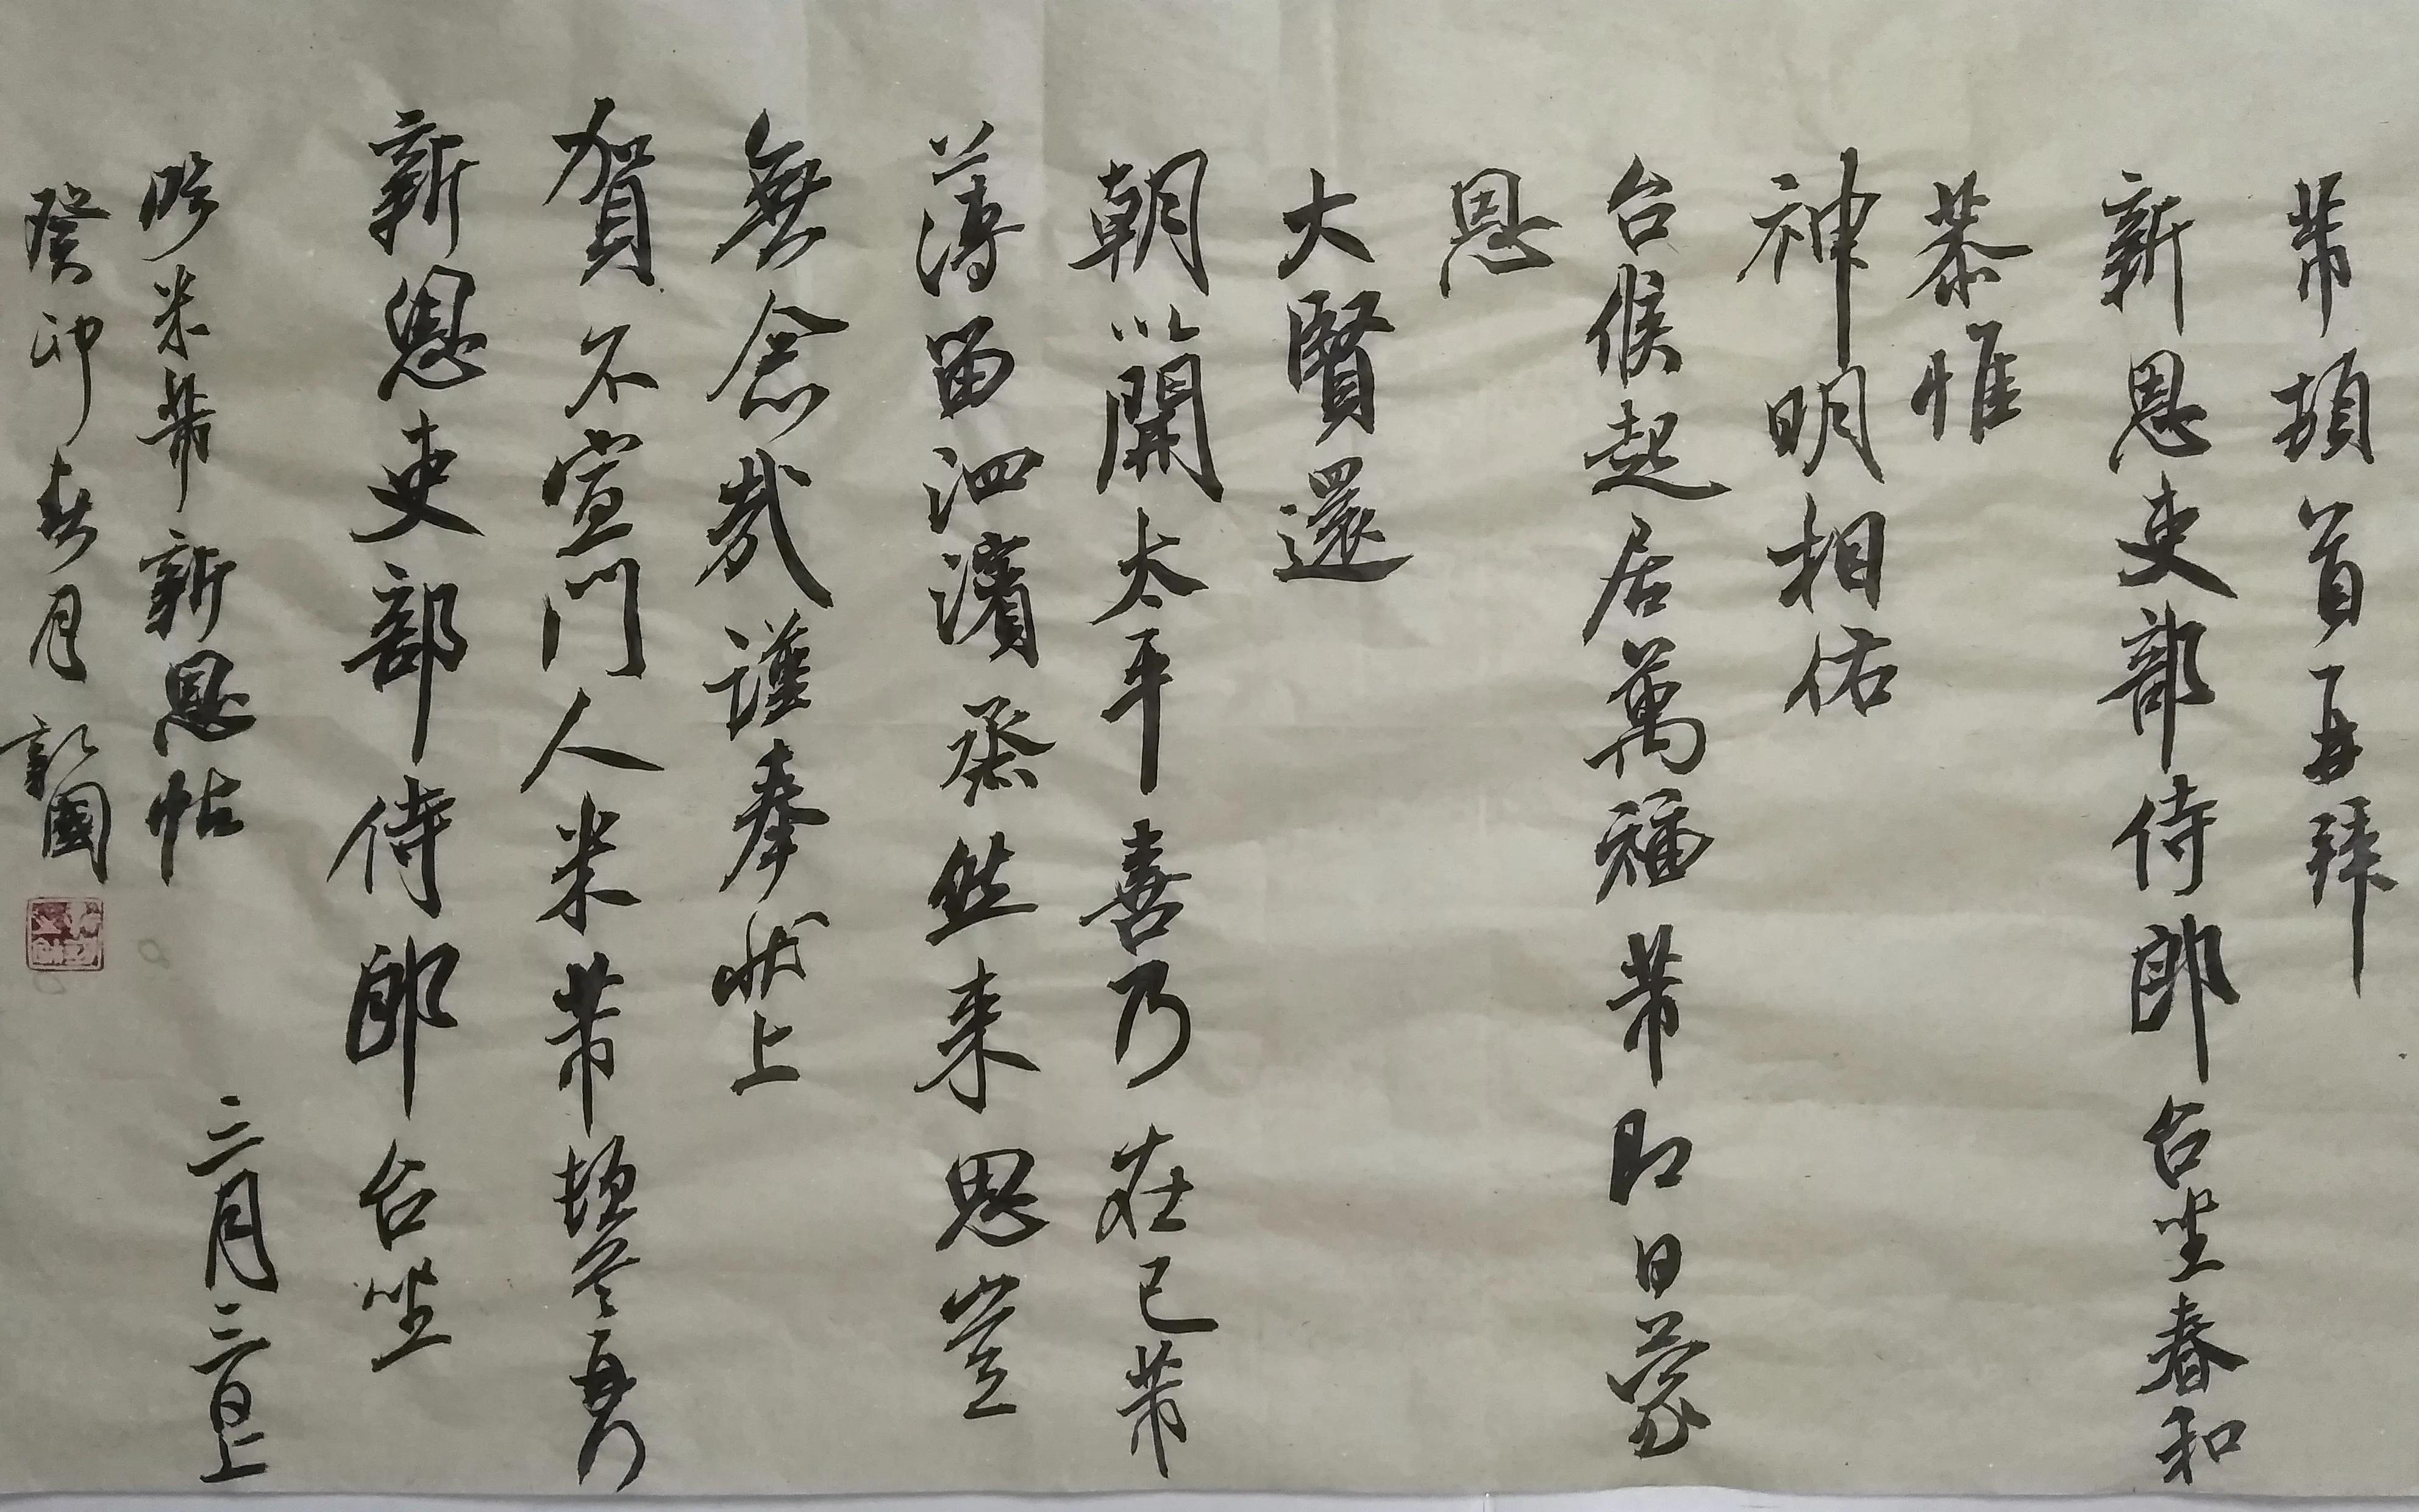 芾頓首再拜
新恩吏部侍郎台坐春和
恭惟
神明相佑
台候起居萬福芾即日蒙
恩
大賢還
朝以開太平喜乃在己芾
薄留泗濱烝然来思豈
無念哉謹奉狀上
賀不宣門人米芾頓首再拜
新恩吏部侍郎台坐
二月三日上
臨米芾新恩帖
癸卯春月郭國